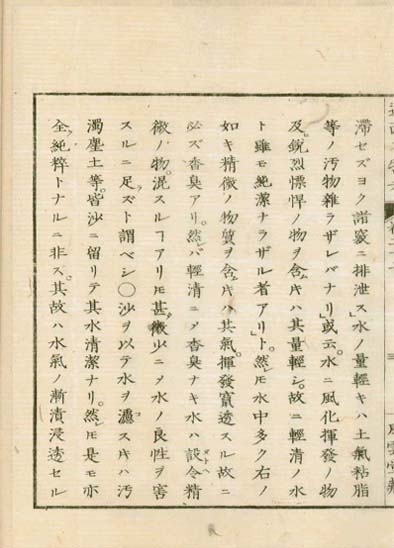 滯セズヨク諸竅ニ排泄ス水ノ量輕キハ土氣粘脂
等ノ汚物雜ラザレバナリ」或云水ニ風化揮發ノ物
及銳烈慓悍ノ物ヲ含ムトキハ其量輕シ。故ニ輕淸ノ水
ト雖モ純潔ナラザル者アリ」ト。然レトモ水中多ク右ノ
如キ精微ノ物質ヲ含ムトキハ其氣揮發竄透スル故ニ
必ズ香臭アリ。然レバ輕淸ニシテ香臭ナキ水ハ設令精
微ノ物混スルコアリトモ甚ダ微少ニシテ水ノ良性ヲ害
スルニ足ズト謂ベシ〇沙ヲ以テ水ヲ濾ストキハ汚
濁塵土等。皆沙ニ留リテ其水淸潔ナリ。然レトモ是モ亦
全ク純粹トナルニ非ス。其故ハ水氣ノ漸漬浸透セル